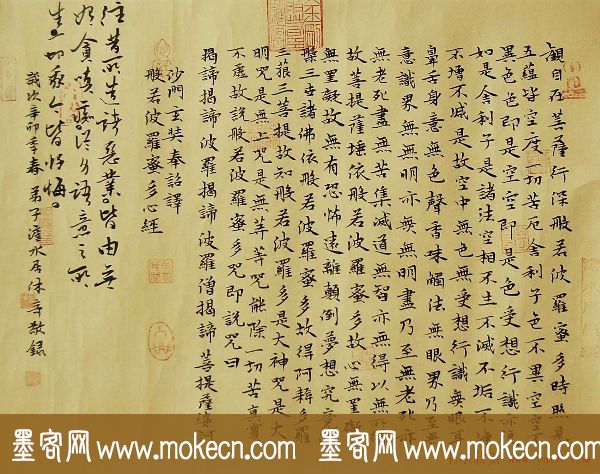 觀自在菩薩行深般若波羅蜜多時照見
五蘊皆空度一切苦厄舍利子色不異空空不
異色色即是空空即是色受想行識亦
如是舍利子是諸法空相不生不滅不垢不淨
不增不減是故空中無色無受想行識無眼耳
鼻舌身意無色聲香味觸法無眼界乃至無
意識界無無明亦無無明盡乃至無老死亦
無老死盡無苦集滅道無智亦無得以無所
故菩提薩埵依般若波羅蜜多故心無罣礙
無罣礙故無有恐怖遠離顛倒夢想究竟
槃三世諸佛依般若波羅蜜多故得阿耨多羅
三藐三菩提故知般若波羅蜜多是大神咒是大
明咒是無上咒是無等等咒能除一切苦真實
不虛故說般若波羅蜜多咒即說咒曰
揭諦揭諦波羅揭諦波羅僧揭諦菩提薩婆訶
沙門玄奘奉詔譯
般若波羅蜜多心經
往昔所造諸惡業皆由無
始貪嗔癡從身語意之所
生一切我今皆懺悔
歲次辛卯季春弟子水居休辛敬錄
墨客网 www.mokecn.com 墨客网 www.mokecn.com